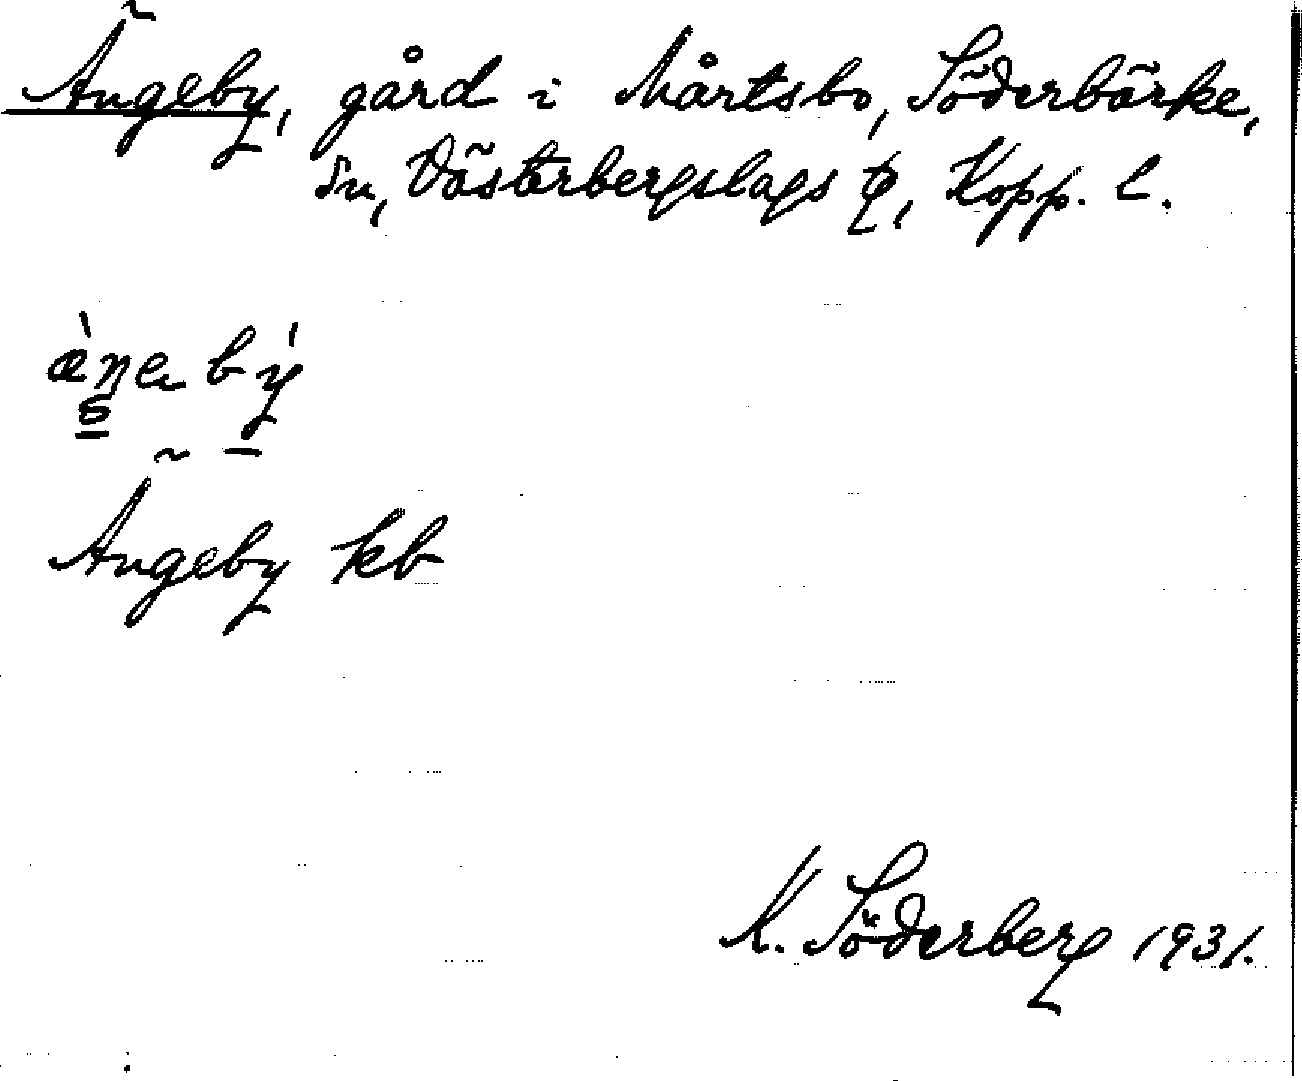 Ängeby, gård i Mårtsbo, Söderbärke,
sn, Västerbergslags fg, Kopp. l.
Ängeby kb
K. Söderberg 1931.